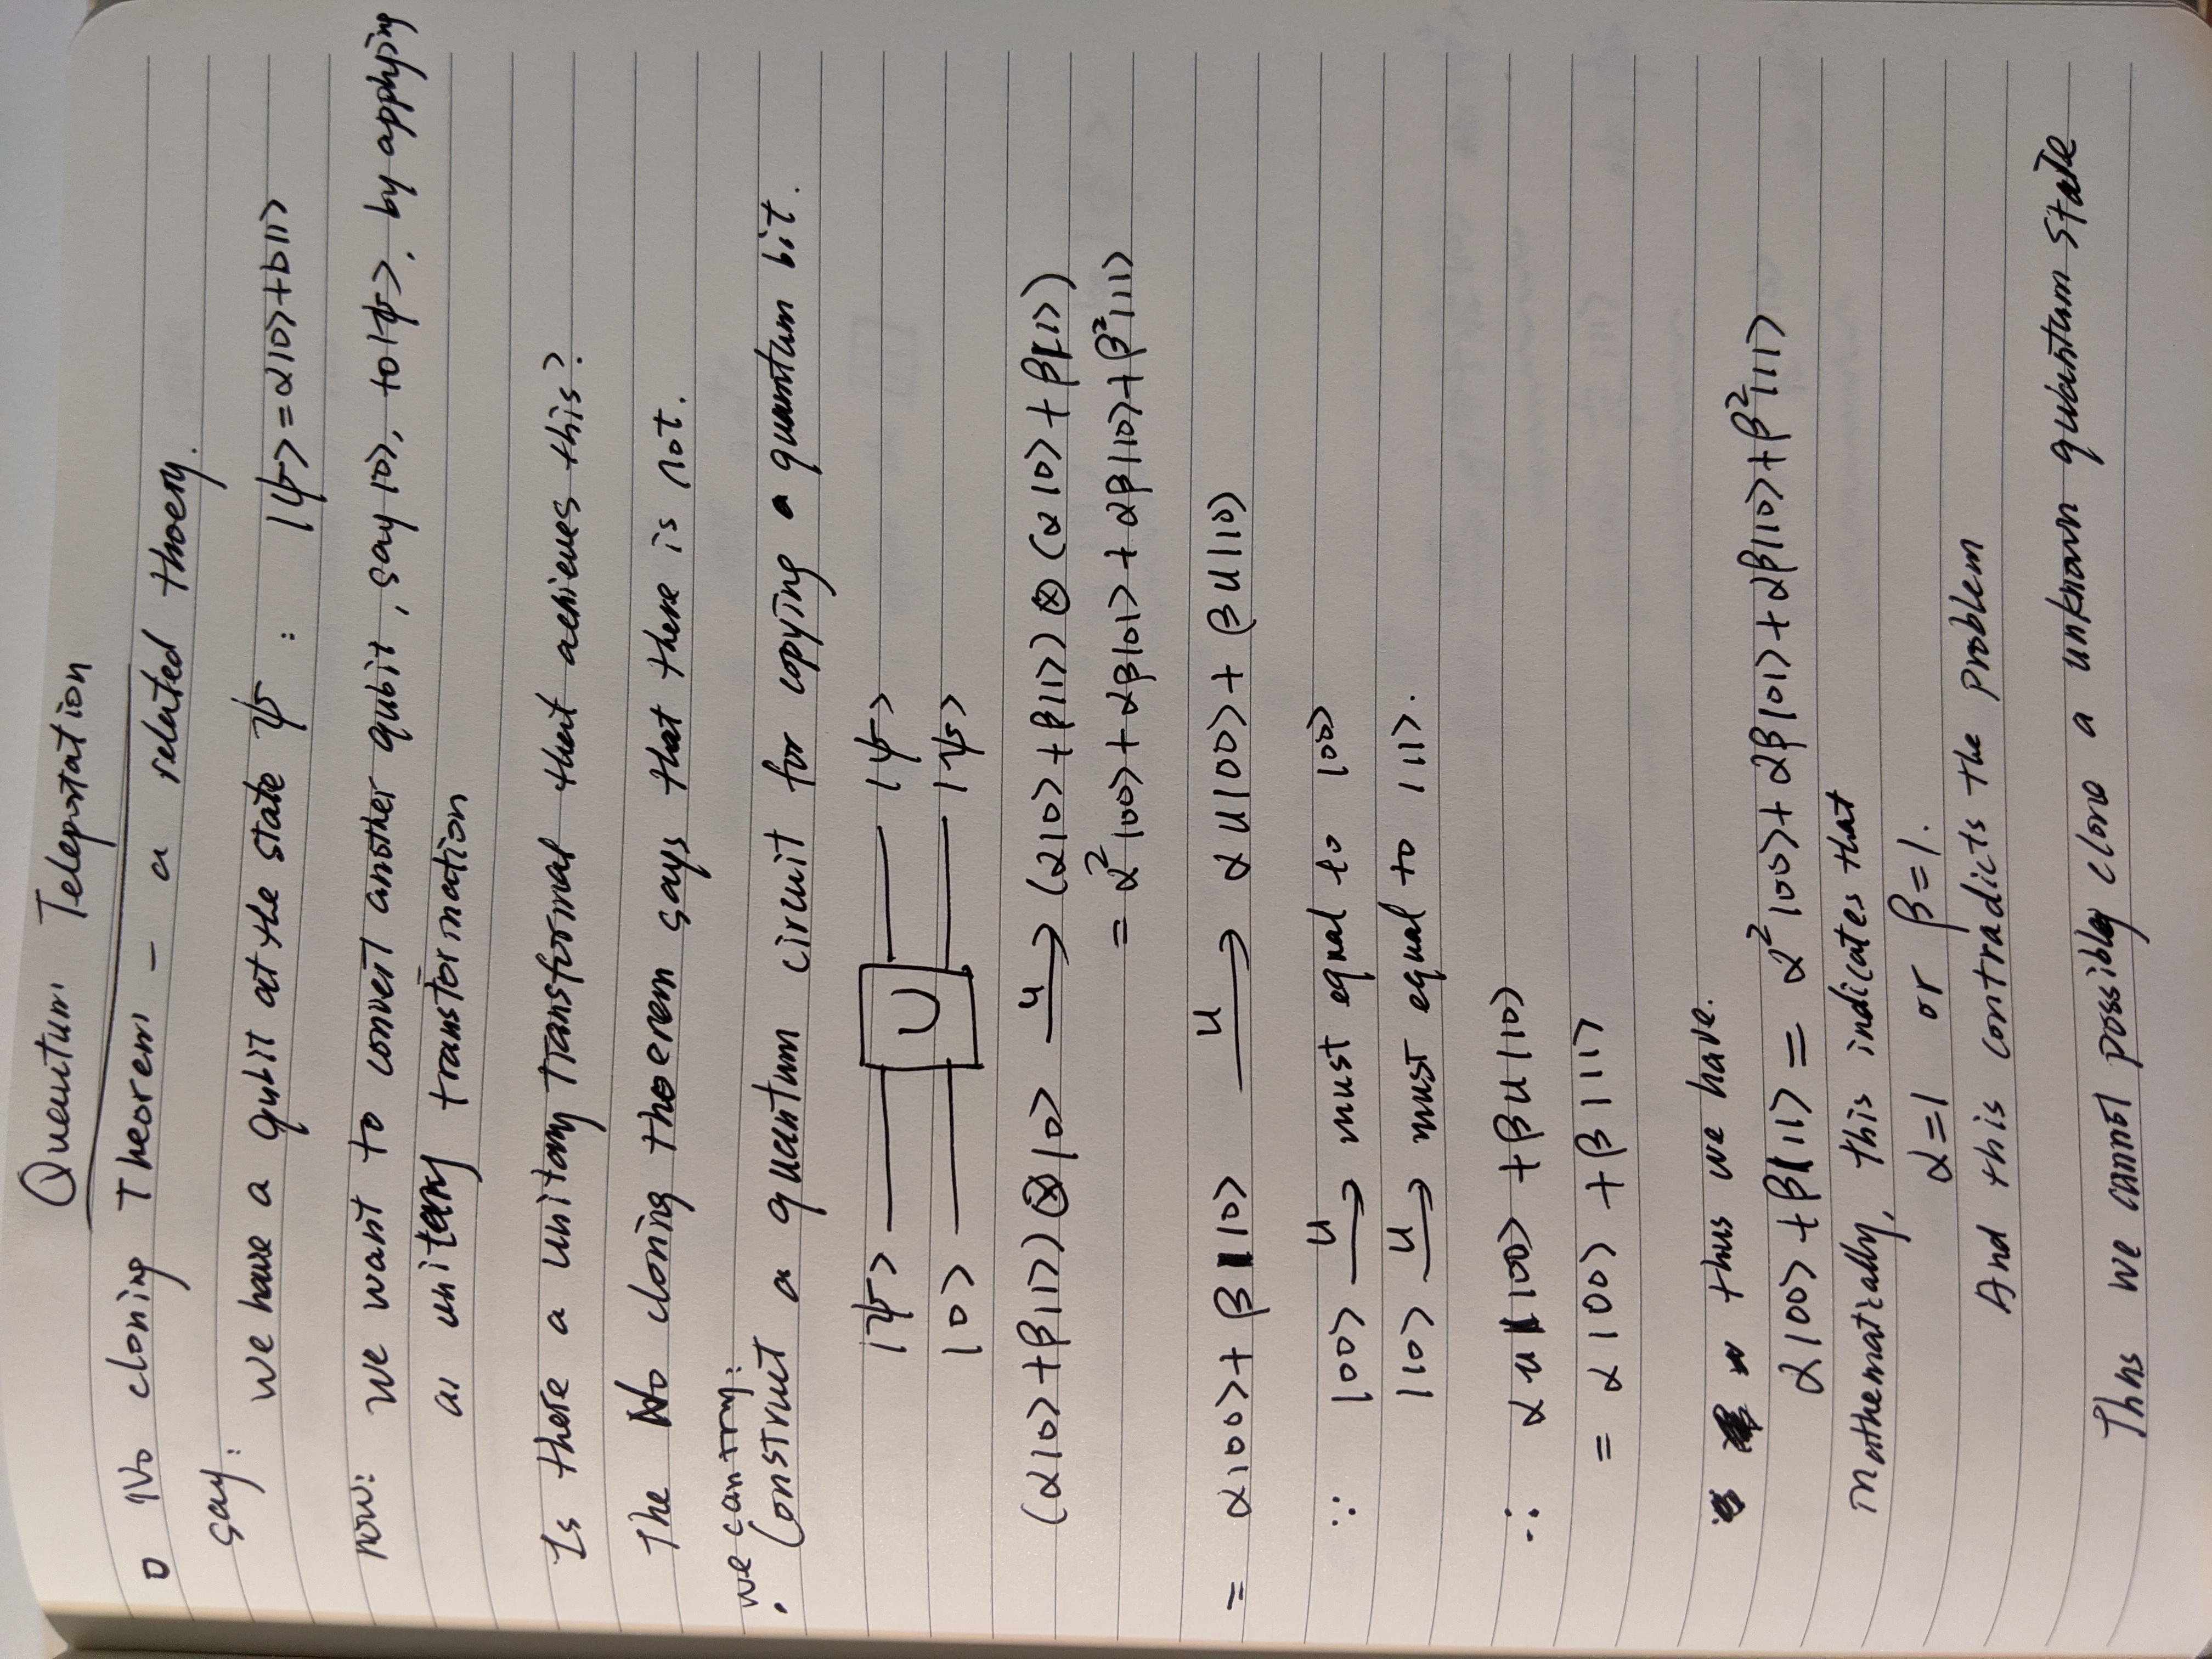 Quantum Teleportation
No cloning Theorem - a related thoery.
say:
We have a qubit at the state ψ : |ψ> = α|0> + b|1>
now: We want to convert another qubit, say |0>, to |ψ>, by applying
a unitary transformation
Is there a unitary transformal that achieves this?
The No cloning thoerem says that there is not.
we can try:
• Construct a quantum circuit for copying a quantum bit.
|ψ> U |ψ>
|0> |ψ>
(α|0> + β|1>) ⊗ |0> —u→ (α|0> + β|1>) ⊗ (α|0> + β|1>)
= α²|00> + αβ|01> + αβ|10> + β²|11>
= α|00> + β|10> —u→ αu|00> + βu|10>
∵ |00> —u→ must equal to |00>
|10> —u→ must equal to |11>.
∴ αu|00> + βu|10>
= α|00> + β|11>
thus we have.
α|00> + β|11> = α²|00> + αβ|01> + αβ|10> + β²|11>
mathematically, this indicates that
α=1 or β=1.
And this contradicts the problem
Thus we cannot possibly clone a unknown quantum state